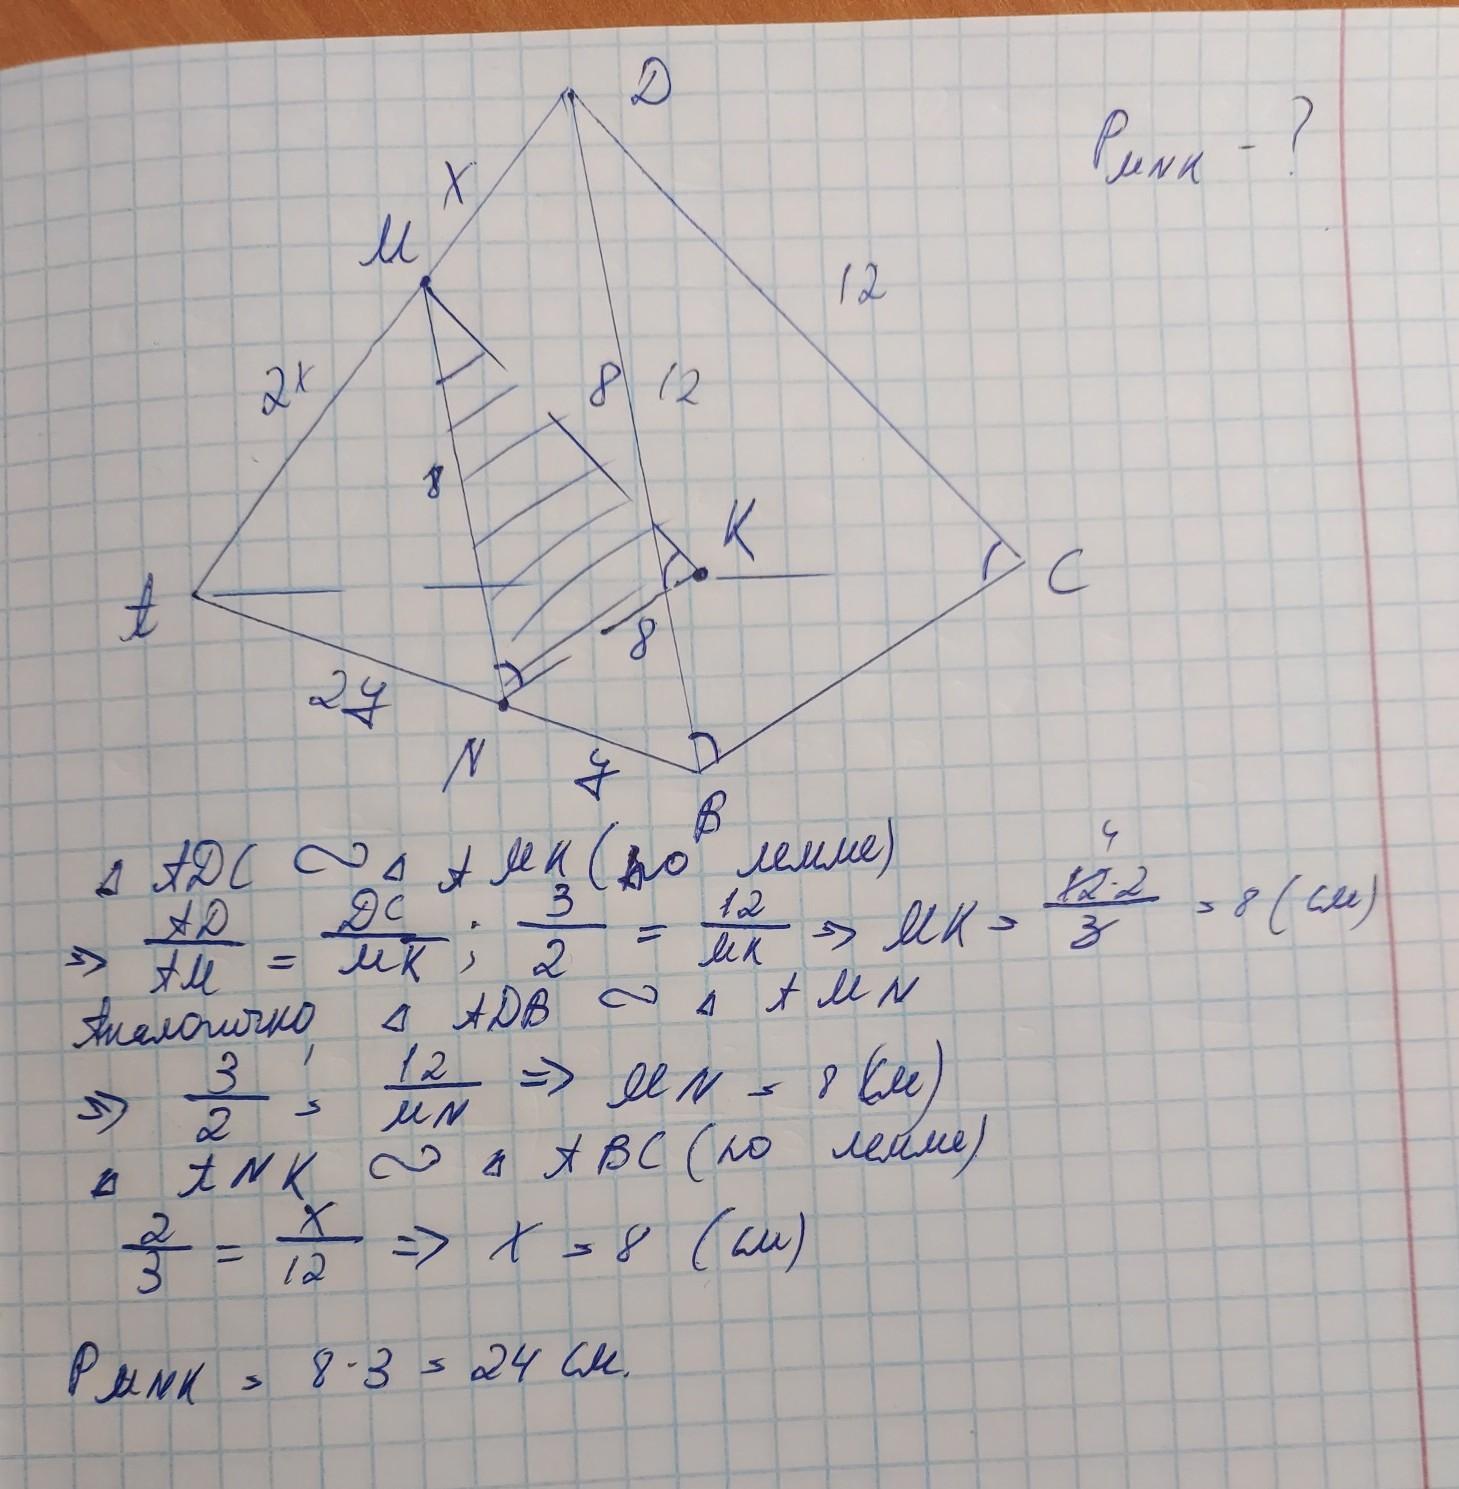 D
P MNK - ?
X
M
12
2x
8 12
8
K
A
C
8
2y
N
y
B
△ ADC ∾ △ AMK (по лемме)
⇒ AD/AM = DC/MK ; 3/2 = 12/MK ⇒ MK = 12·2/3 = 8 (см)
4
Аналогично, △ ADB ∾ △ AMN
⇒ 3/2 = 12/MN ⇒ MN = 8 (см)
△ ANK ∾ △ ABC (по лемме)
2/3 = x/12 ⇒ x = 8 (см)
P MNK = 8·3 = 24 см.